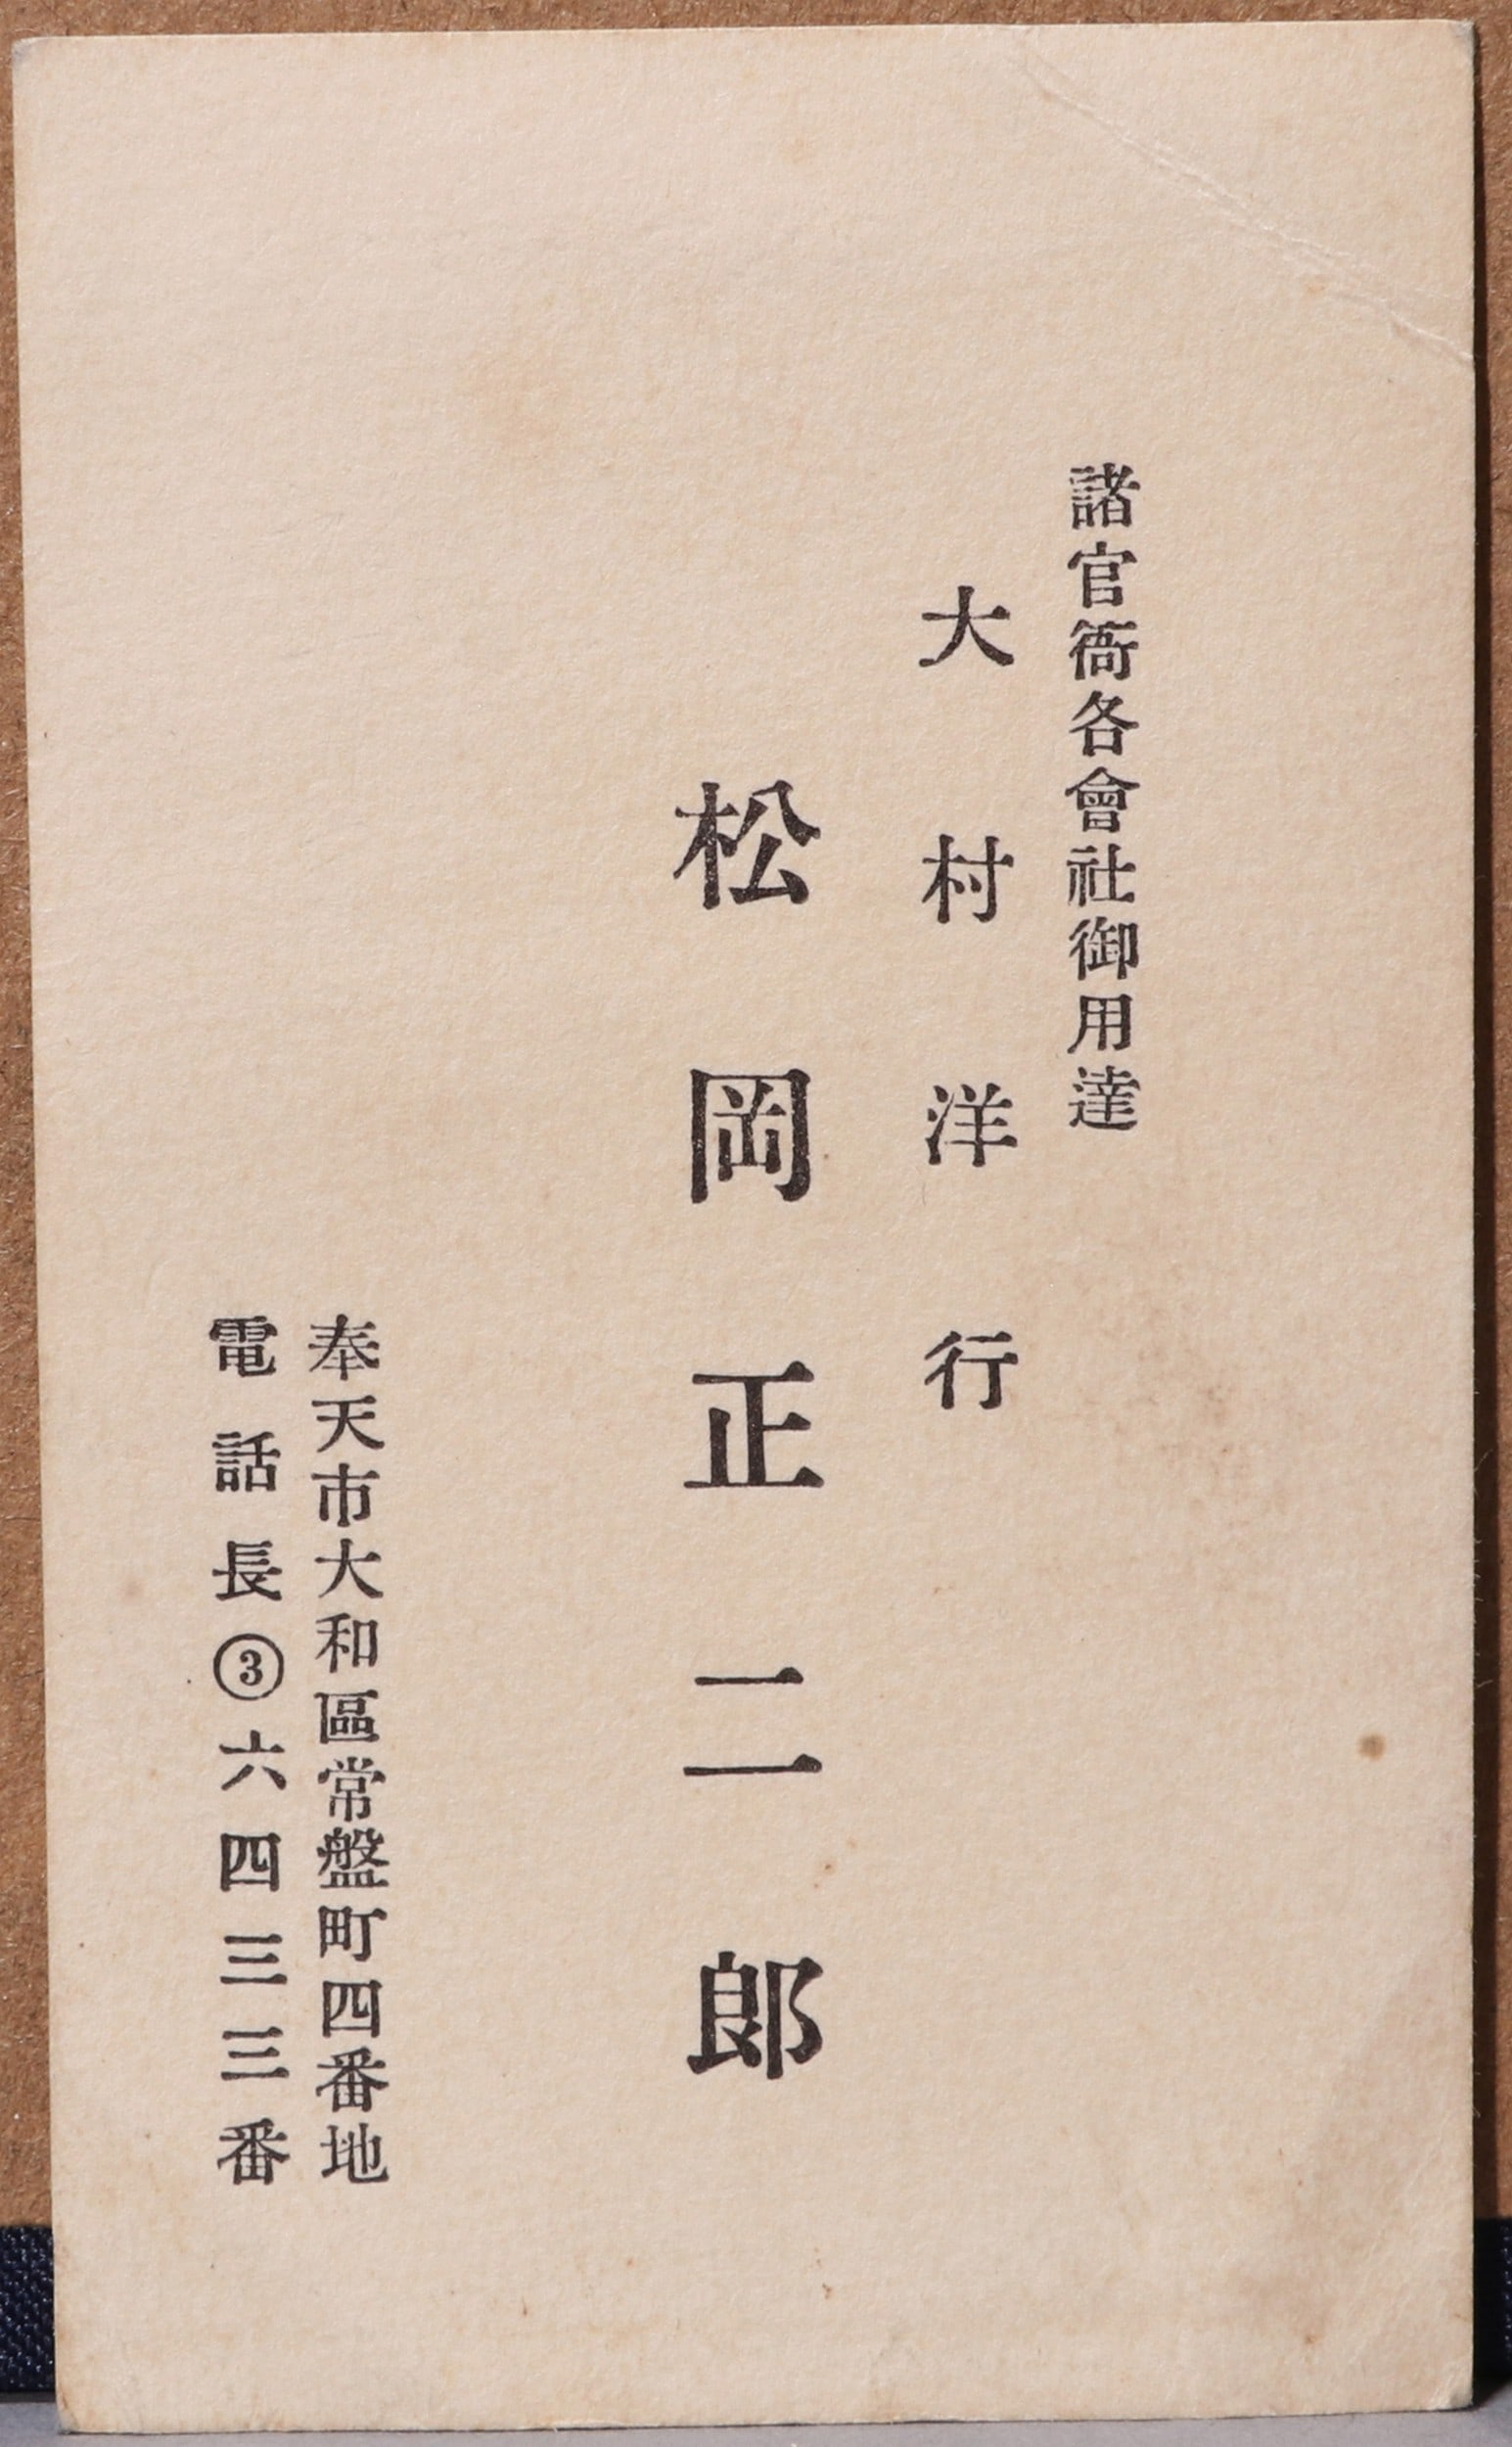 諸官衙各會社御用達
大村洋行
松岡正二郎
奉天市大和區常盤町四番地
電話長③六四三三番